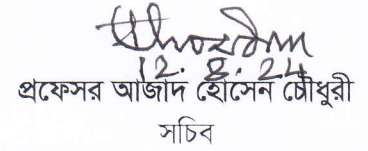 12.8.24
প্রফেসর আজাদ হোসেন চৌধুরী
সচিব